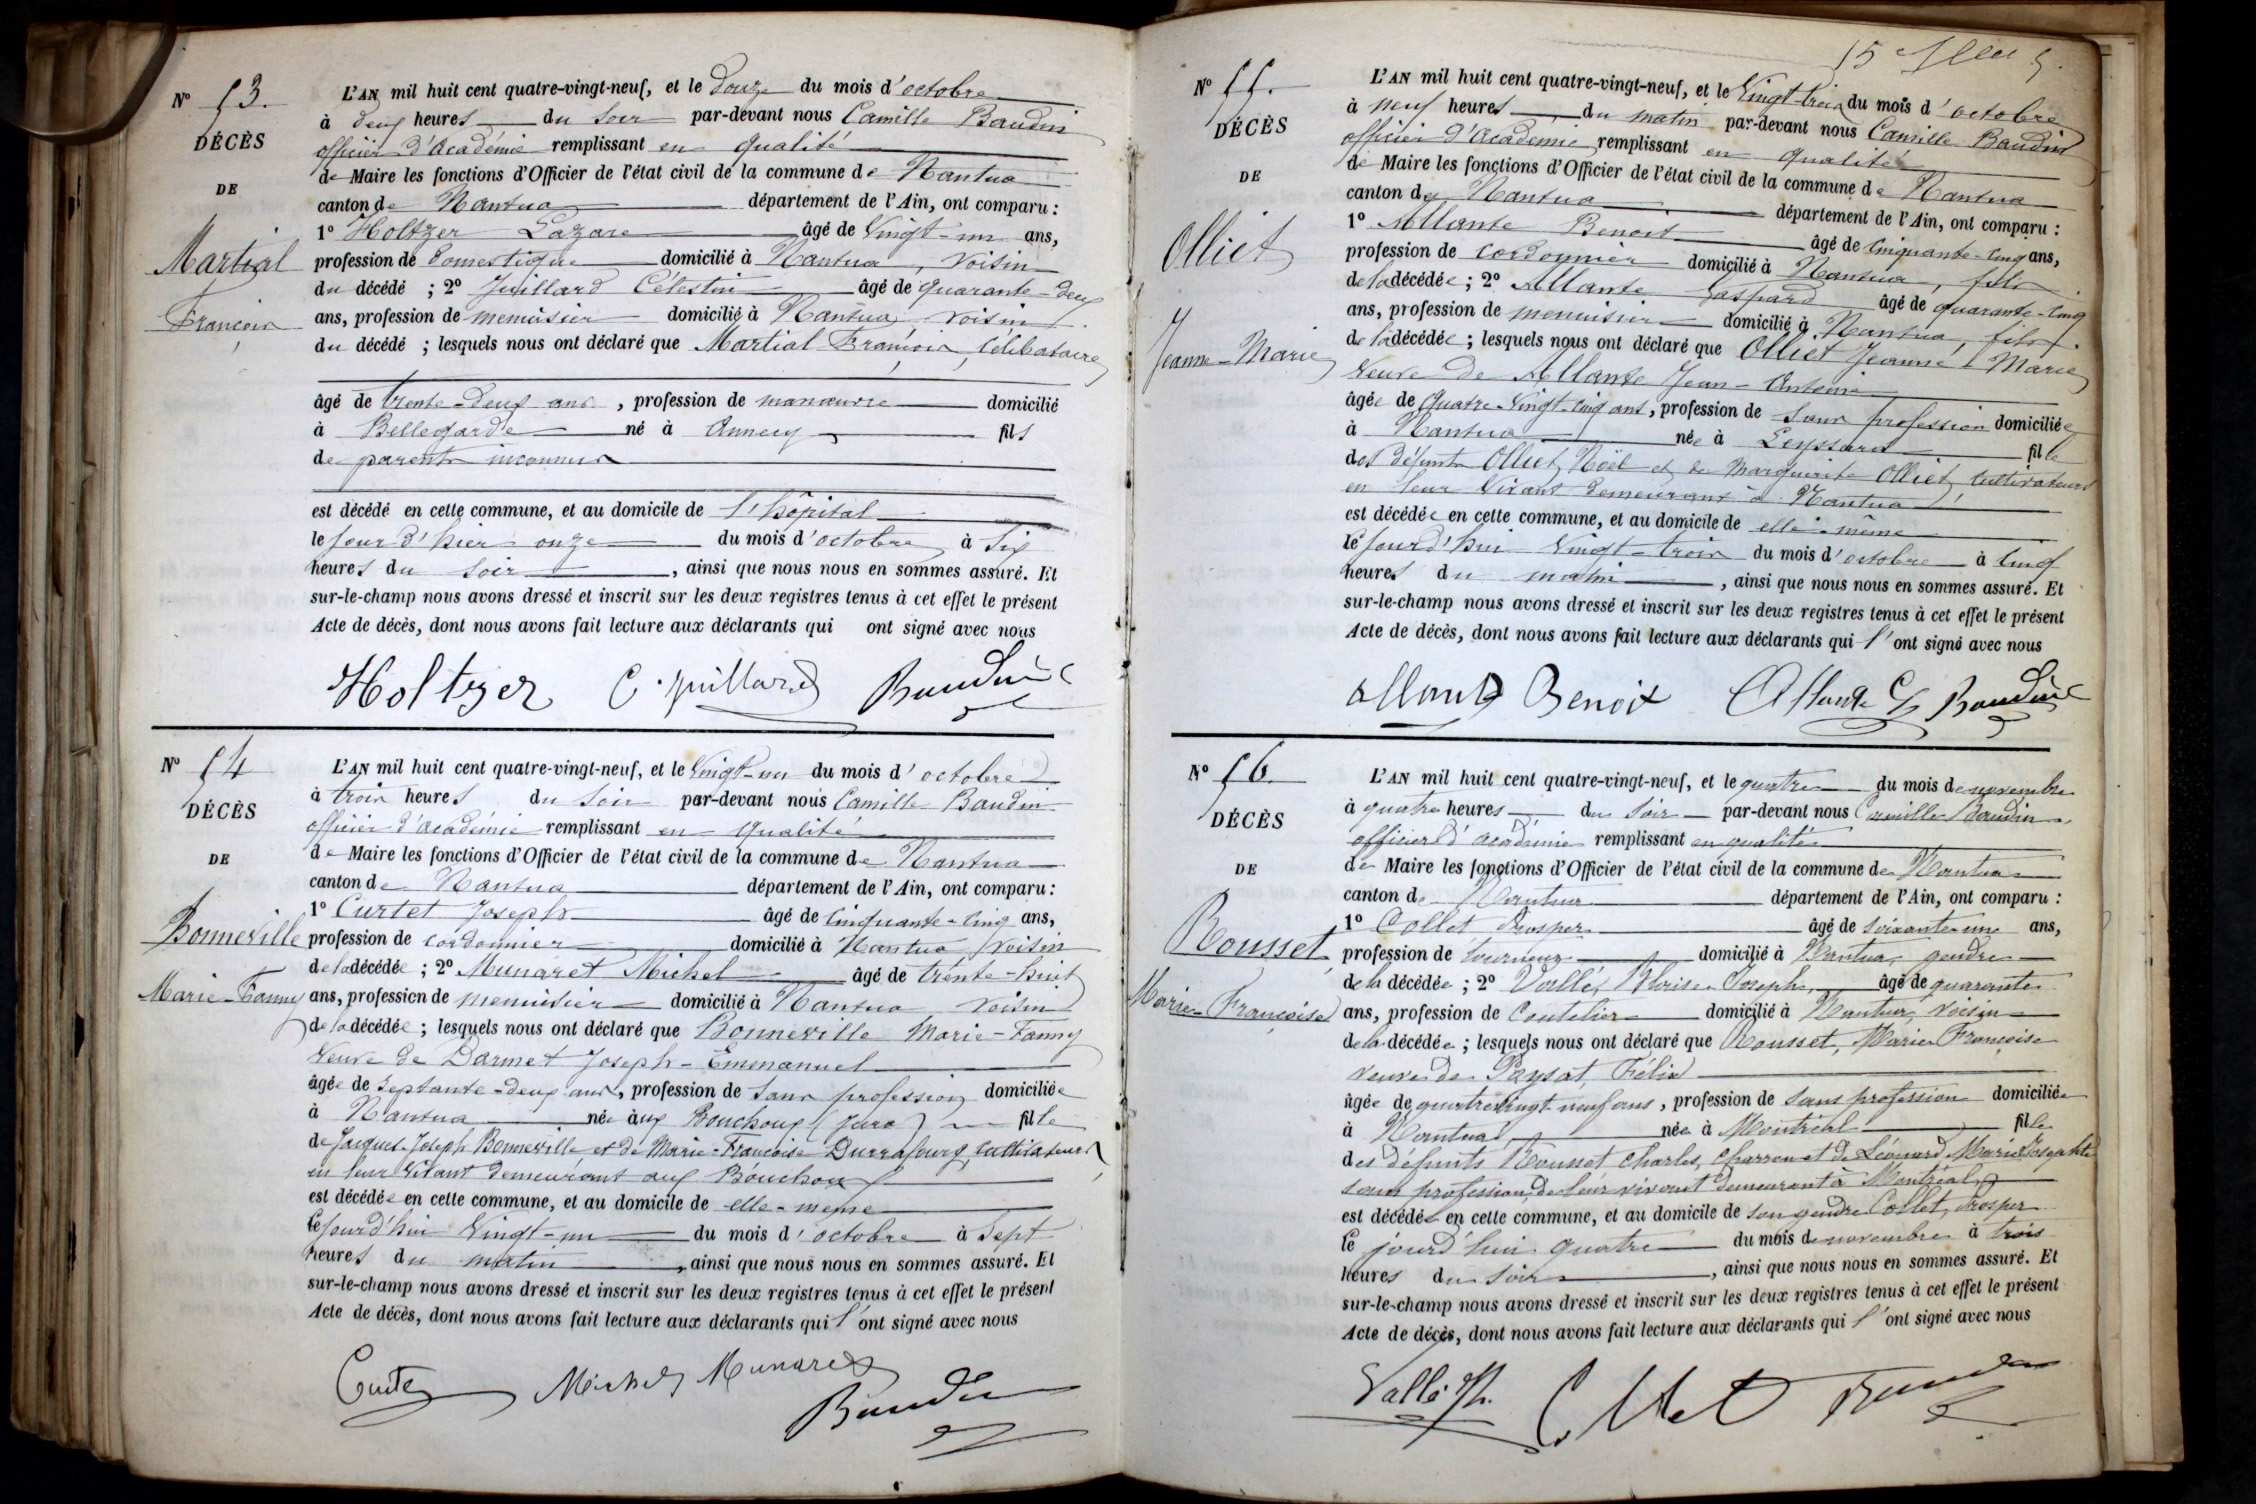 Nº 53.
DÉCÈS
DE
Martial
François
L'AN mil huit cent quatre-vingt-neuf, et le douze du mois d'octobre
à deux heures du soir par-devant nous Camille Baudin
officier d'Académie remplissant en qualité
de Maire les fonctions d'Officier de l'état civil de la commune de Nantua
canton de Nantua département de l'Ain, ont comparu :
1º Holtzer Lazare âgé de vingt-un ans,
profession de domestique domicilié à Nantua, voisin
du décédé ; 2º Juillard Célestin âgé de quarante-deux
ans, profession de menuisier domicilié à Nantua, voisin
du décédé ; lesquels nous ont déclaré que Martial François, célibataire
âgé de trente-deux ans, profession de manœuvre domicilié
à Bellegarde né à Annecy fils
de parents inconnus
est décédé en cette commune, et au domicile de l'hôpital
le jour d'hier onze du mois d'octobre à six
heures du soir, ainsi que nous nous en sommes assuré. Et
sur-le-champ nous avons dressé et inscrit sur les deux registres tenus à cet effet le présent
Acte de décès, dont nous avons fait lecture aux déclarants qui ont signé avec nous
Holtzer C. Juillard Baudin
Nº 54
DÉCÈS
DE
Bonneville
Marie-Fanny
L'AN mil huit cent quatre-vingt-neuf, et le vingt-un du mois d'octobre
à trois heures du soir par-devant nous Camille Baudin
officier d'académie remplissant en qualité
de Maire les fonctions d'Officier de l'état civil de la commune de Nantua
canton de Nantua département de l'Ain, ont comparu :
1º Curtet Joseph âgé de cinquante-cinq ans,
profession de cordonnier domicilié à Nantua, voisin
de la décédée ; 2º Munaret Michel âgé de trente-huit
ans, profession de menuisier domicilié à Nantua voisin
de la décédée ; lesquels nous ont déclaré que Bonneville Marie-Fanny
veuve de Darmet Joseph-Emmanuel
âgée de septante-deux ans, profession de sans profession domiciliée
à Nantua née aux Bouchoux (Jura) fille
de Jacques-Joseph Bonneville et de Marie-Françoise Durrafourg, cultivateurs
en leur vivant demeurant aux Bouchoux
est décédée en cette commune, et au domicile de elle-même
le jourd'hui vingt-un du mois d'octobre à sept
heures du matin, ainsi que nous nous en sommes assuré. Et
sur-le-champ nous avons dressé et inscrit sur les deux registres tenus à cet effet le présent
Acte de décès, dont nous avons fait lecture aux déclarants qui l'ont signé avec nous
Curtet Michel Munaret
Baudin
Nº 55.
DÉCÈS
DE
Olliet
Jeanne-Marie
L'AN mil huit cent quatre-vingt-neuf, et le vingt-trois du mois d'octobre
à neuf heures du matin par-devant nous Camille Baudin
officier d'académie remplissant en qualité
de Maire les fonctions d'Officier de l'état civil de la commune de Nantua
canton de Nantua département de l'Ain, ont comparu :
1º Allante Benoit âgé de cinquante-cinq ans,
profession de cordonnier domicilié à Nantua, fils
de la décédée ; 2º Allante Gaspard âgé de quarante-cinq
ans, profession de menuisier domicilié à Nantua, fils
de la décédée ; lesquels nous ont déclaré que Olliet Jeanne Marie
veuve de Allante Jean-Antoine
âgée de quatre-vingt-cinq ans, profession de sans profession domiciliée
à Nantua née à Leyssard fille
des défunts Olliet Noël et de Marguerite Olliet, cultivateurs
en leur vivant demeurant à Nantua
est décédée en cette commune, et au domicile de elle-même
le jourd'hui vingt-trois du mois d'octobre à cinq
heures du matin, ainsi que nous nous en sommes assuré. Et
sur-le-champ nous avons dressé et inscrit sur les deux registres tenus à cet effet le présent
Acte de décès, dont nous avons fait lecture aux déclarants qui l'ont signé avec nous
Allante Benoit Allante G Baudin
Nº 56.
DÉCÈS
DE
Rousset
Marie-Françoise
L'AN mil huit cent quatre-vingt-neuf, et le quatre du mois de novembre
à quatre heures du soir par-devant nous Camille Baudin
officier d'académie remplissant en qualité
de Maire les fonctions d'Officier de l'état civil de la commune de Nantua
canton de Nantua département de l'Ain, ont comparu :
1º Collet Prosper âgé de soixante-un ans,
profession de tourneur domicilié à Nantua, gendre
de la décédée ; 2º Vallé, Joseph, âgé de quarante
ans, profession de Coutelier domicilié à Nantua, voisin
de la décédée ; lesquels nous ont déclaré que Rousset, Marie Françoise
veuve de Paysat, Félix
âgée de quatre vingt-neuf ans, profession de sans profession domiciliée
à Nantua née à Montréal fille
des défunts Rousset Charles, charron et de Léonard Marie Josephte
sans profession, de leur vivant demeurant à Montréal
est décédée en cette commune, et au domicile de son gendre Collet, Prosper
le jourd'hui quatre du mois de novembre à trois
heures du soir, ainsi que nous nous en sommes assuré. Et
sur-le-champ nous avons dressé et inscrit sur les deux registres tenus à cet effet le présent
Acte de décès, dont nous avons fait lecture aux déclarants qui l'ont signé avec nous
Vallé Collet Baudin